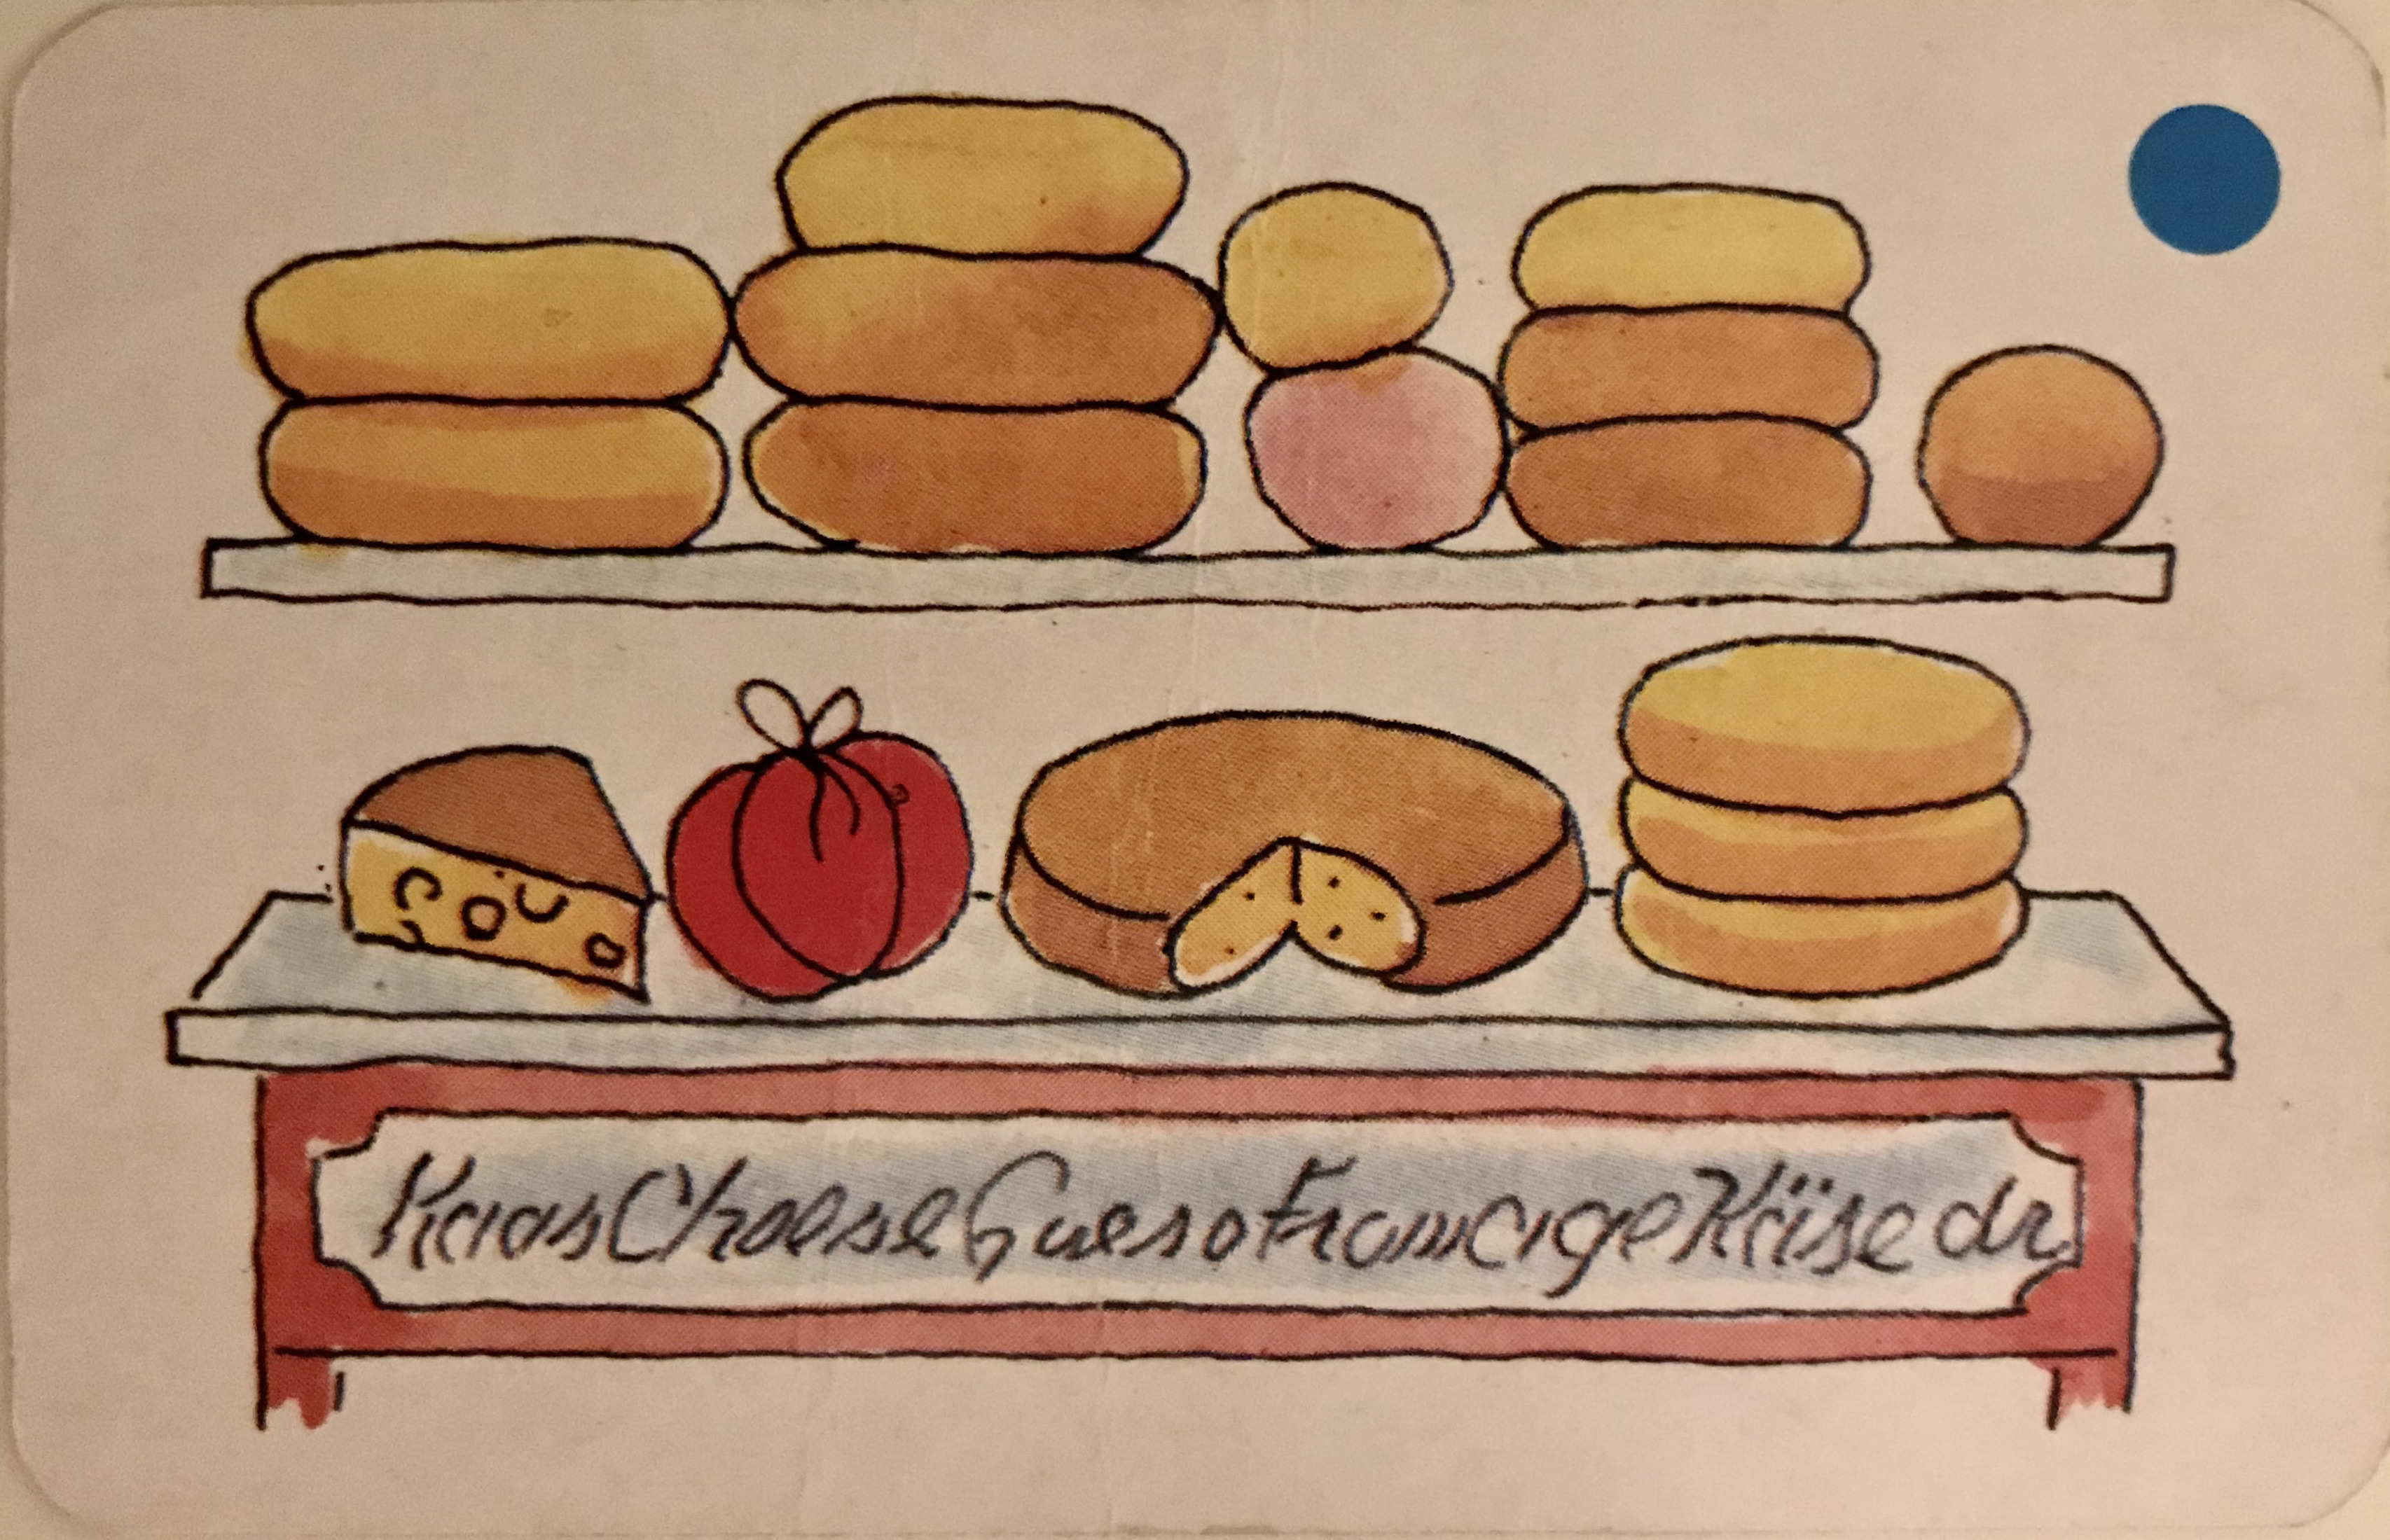 Kaas Cheese Queso Fromage Käse dr